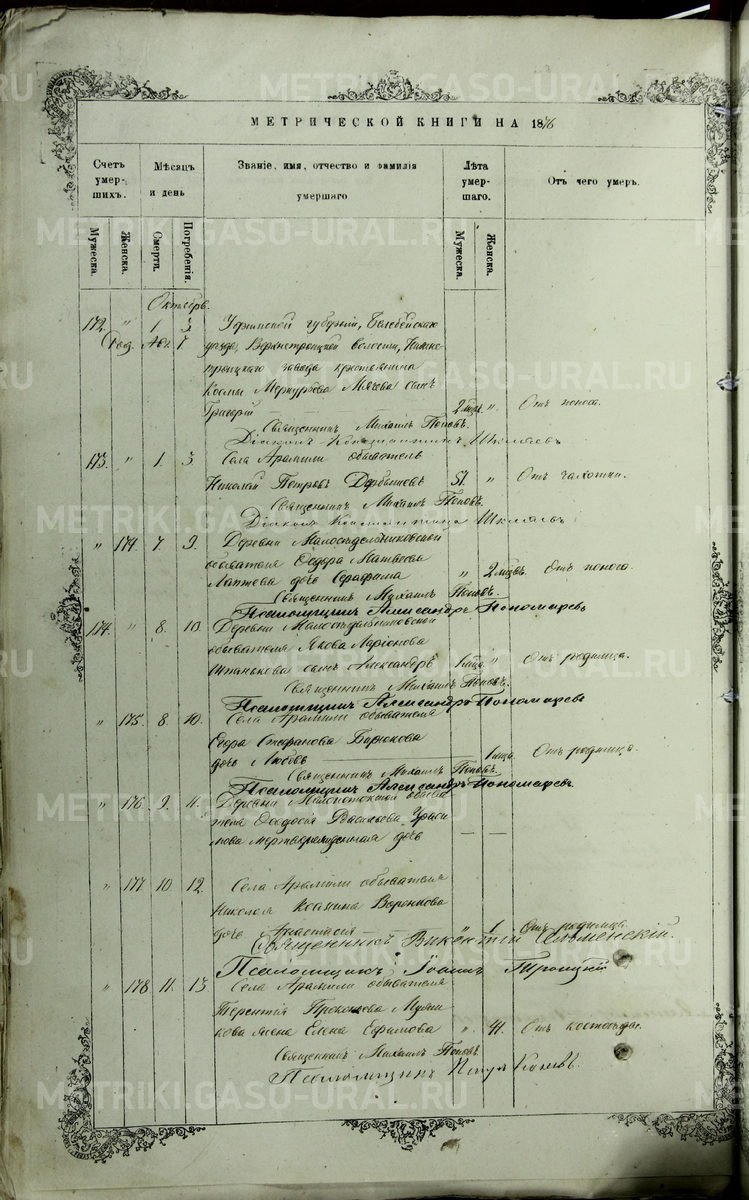 МЕТРИЧЕСКОЙ КНИГИ НА 1876
Счетъ умер-шихъ.
Мѣсяцъ и день
Званіе, имя, отчество и фамилія умершаго
Лѣта умер-шаго.
Отъ чего умеръ.
Мужеска. Женска. Смерти. Погребенія. Мужеска. Женска.
Октябрь.
172. " 1. 3. Уфимской губерніи, Белебейскаго
уѣзда, Верхнетроицкой волости, Нижне
троицкаго завода крестьянина
Козмы Меркурьева сынъ
Григорій 2 мѣс. " Отъ поноса.
Священникъ Михаилъ Поповъ.
Діаконъ Константинъ Шкляевъ
173. " 1. 3 Села Арамили обыватель
Николай Петровъ 51. " Отъ чахотки.
Священникъ Михаилъ Поповъ.
Діаконъ Константинъ Шкляевъ
" 174. 7. 9. Деревни Малосѣдельниковской
обывателя Ѳедора Матвеева
Лаптева дочь Серафима " 2 мѣс. Отъ поноса.
Священникъ Михаилъ Поповъ.
Псаломщикъ Александръ Пономаревъ
174. " 8. 10. Деревни Малосѣдельниковской
обывателя Якова Ларіонова
Шпанькова сынъ Александръ 1 мѣс. " Отъ родимца.
Священникъ Михаилъ Поповъ.
Псаломщикъ Александръ Пономаревъ
" 175. 8. 10. Села Арамили обывателя
Егора Стефанова
дочь Любовь 1 мѣс. Отъ родимца.
Священникъ Михаилъ Поповъ.
Псаломщикъ Александръ Пономаревъ.
" 176. 9. 11. Деревни обыва
теля Ѳеодосія Васильева
мертворожденная дочь —
" 177 10. 12. Села Арамили обывателя
Николая Іоанина Воронкова
дочь Анастасія 1 Отъ родимца.
Священникъ Викентій
Псаломщикъ Іоаннъ Троицкій
" 178 11. 13 Села Арамили обывателя
Терентія Прокопьева
жена Елена Ефимова " 41. Отъ
Священникъ Михаилъ Поповъ.
Псаломщикъ Петръ
METRIKI.GASO-URAL.RU